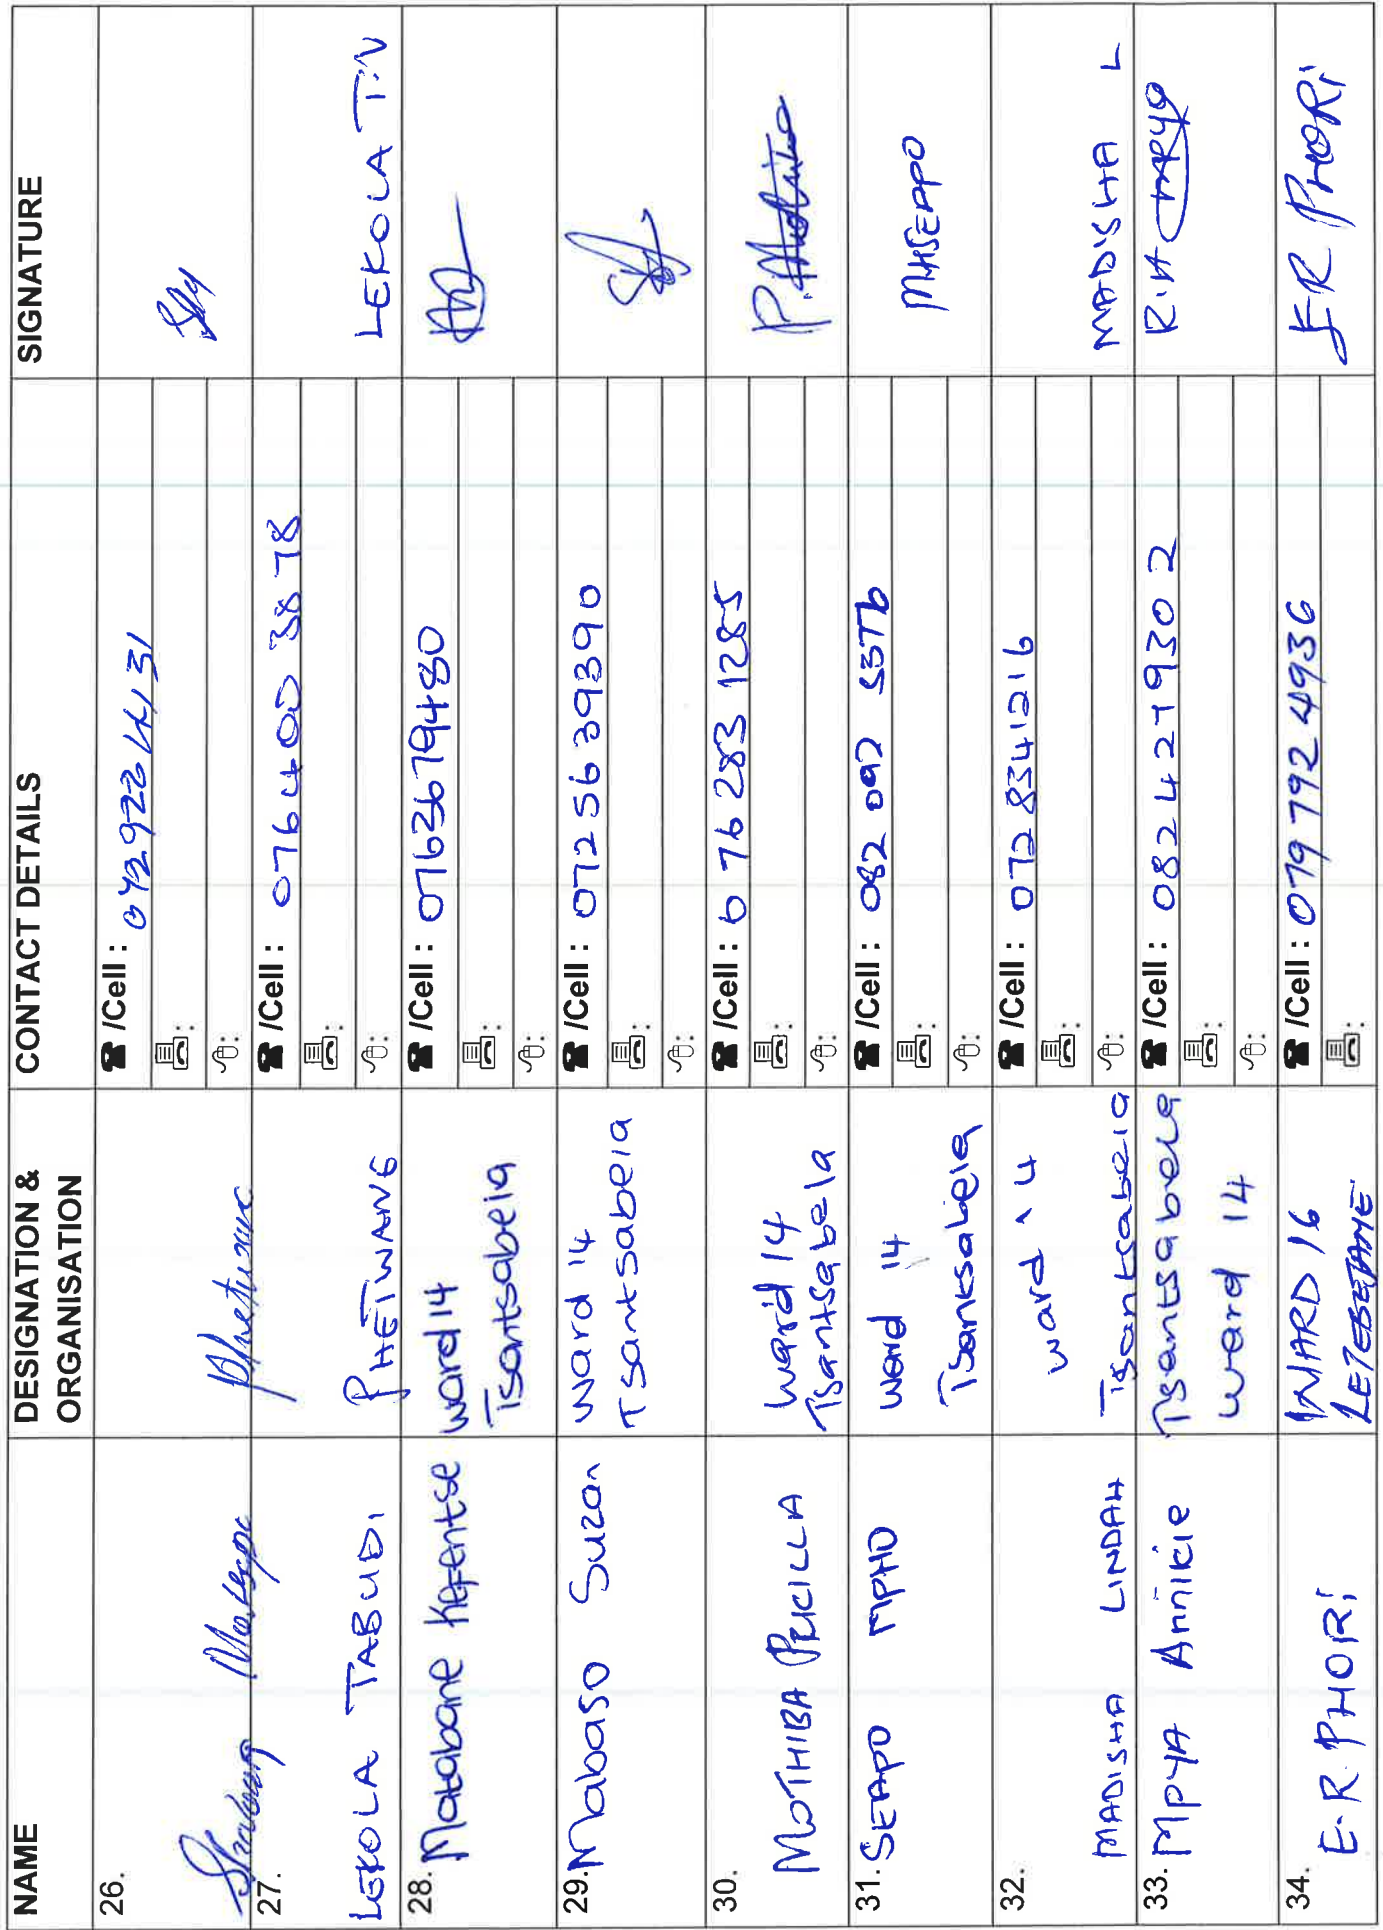 NAME
DESIGNATION &
ORGANISATION
CONTACT DETAILS
SIGNATURE
26.
/Cell :
27.
LEKOLA TABUDI
PHETWANG
/Cell : 076 400 3878
LEKOLA T.N
28. Matabane Kefentse
ward 14
Tsantsabela
/Cell : 0763679480
29. Mabaso Suzan
ward 14
Tsantsabela
/Cell : 0725639390
30.
MOTHIBA PRICILLA
ward 14
Tsantsabela
/Cell : 076 283 1285
31. SEAPO MPHO
ward 14
Tsantsabela
/Cell : 082 092
MHSEAPO
32.
MADISHA LINDAH
ward 14
Tsantsabela
/Cell : 0728341216
MADISHA L
33. MPYA Annikie
Tsantsabela
ward 14
/Cell : 0824279302
34.
E.R. PHORI
WARD 16
/Cell : 079 792 4936
ER PHORI